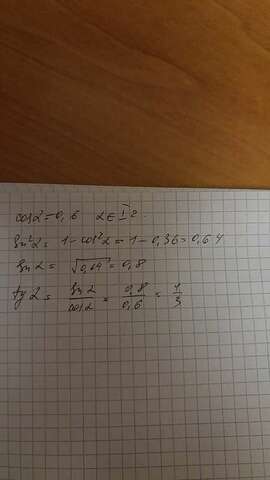 cosα=0,6 α∈I г.
sin²α = 1-cos²α = 1-0,36=0,64
sinα = √0,64 = 0,8
tgα = sinα/cosα = 0,8/0,6 = 1/3